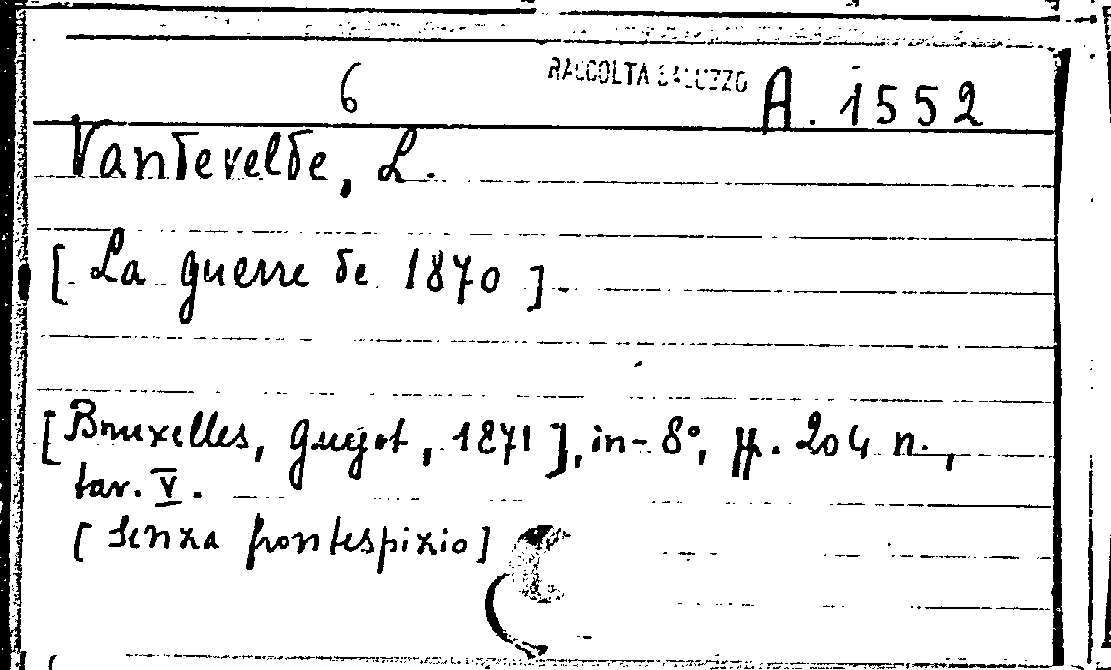 6 RACCOLTA SALUZZO A. 1552
Vandevelde, L.
[ La guerre de 1870 ].
[Bruxelles, Guyot, 1871], in-8°, pp. 204 n.,
tav. V.
[Senza frontespizio]